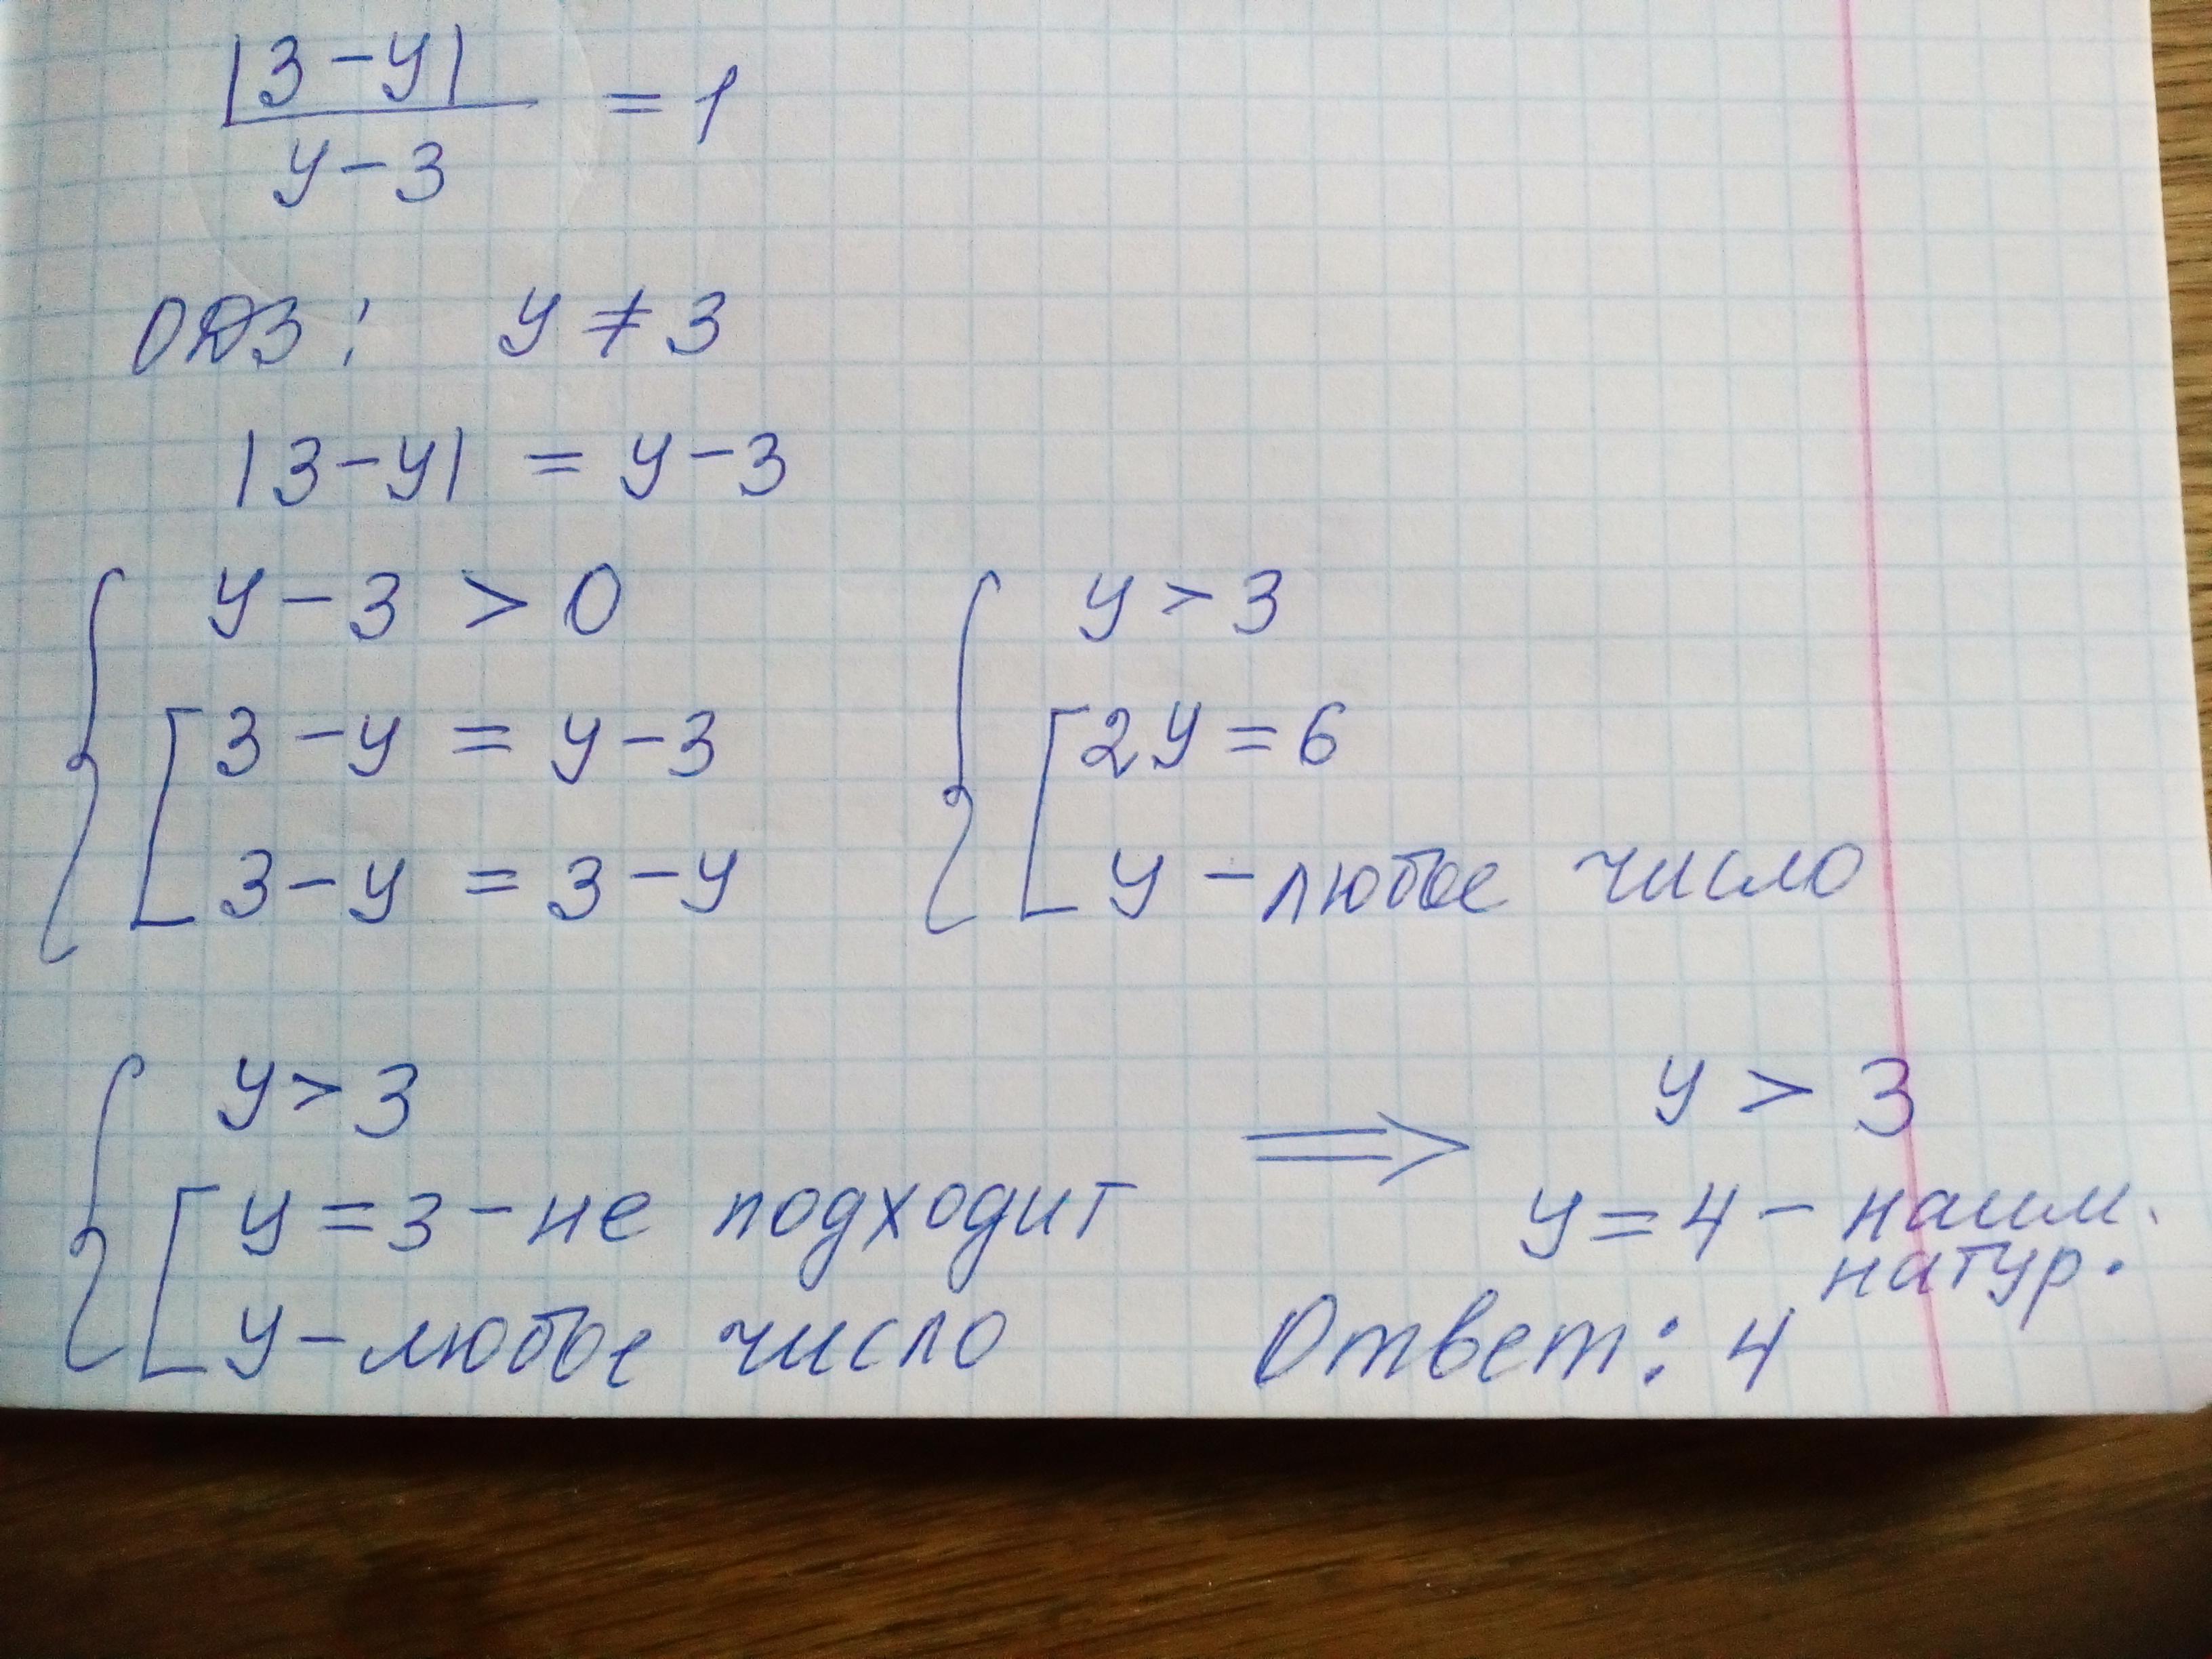 |3-y|
y-3
= 1
ОДЗ: y ≠ 3
|3-y| = y-3
y-3 > 0
3-y = y-3
3-y = 3-y
y > 3
2y = 6
y - любое число
y > 3
y = 3 - не подходит
y - любое число
⟹
y > 3
y = 4 - наим.
натур.
Ответ: 4